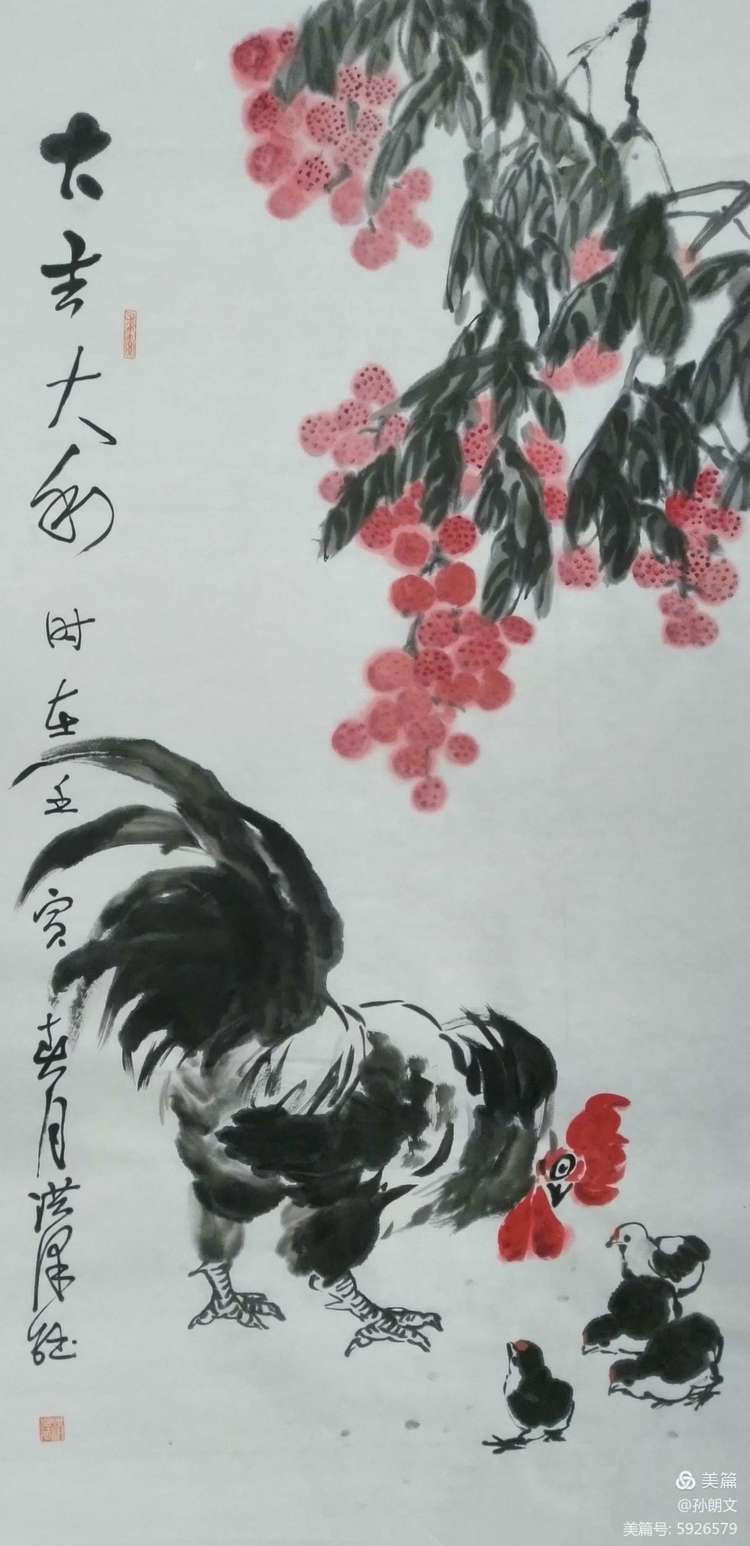 大吉大利 时在壬寅春月洪泽
美篇
@孙朗文
美篇号: 5926579